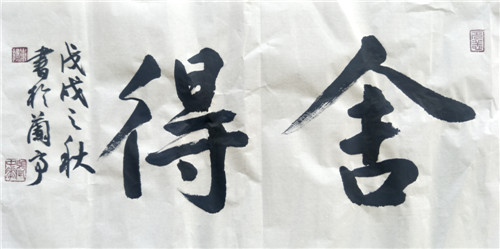 舍得
戊戌之秋
書於蘭亭